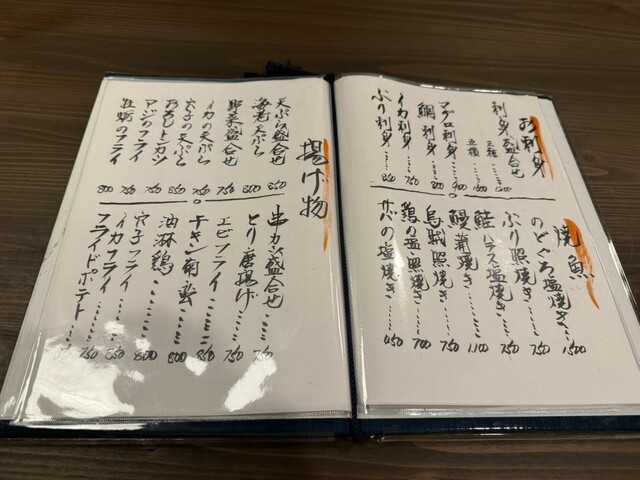 お刺身
刺身盛合せ
三種……
五種……
マグロ刺身……900
鯛刺身……800
イカ刺身……750
ぶり刺身……850
焼魚
のどぐろ塩焼き……1,500
ぶり照焼き……750
鮭ハラス塩焼き……750
鰻蒲焼き……1,100
烏賊照焼き……750
鶏の塩・照焼き……700
サバの塩焼き……650
揚げ物
天ぷら盛合せ 850
海老天ぷら 800
野菜盛合せ 750
イカの天ぷら
穴子の天ぷら 850
おろしトンカツ 850
アジのフライ 750
牡蛎のフライ 800
串カツ盛合せ……750
とり唐揚げ……750
エビフライ……850
チキン南蛮……800
油淋鶏……800
穴子フライ……850
イカフライ……750
フライドポテト